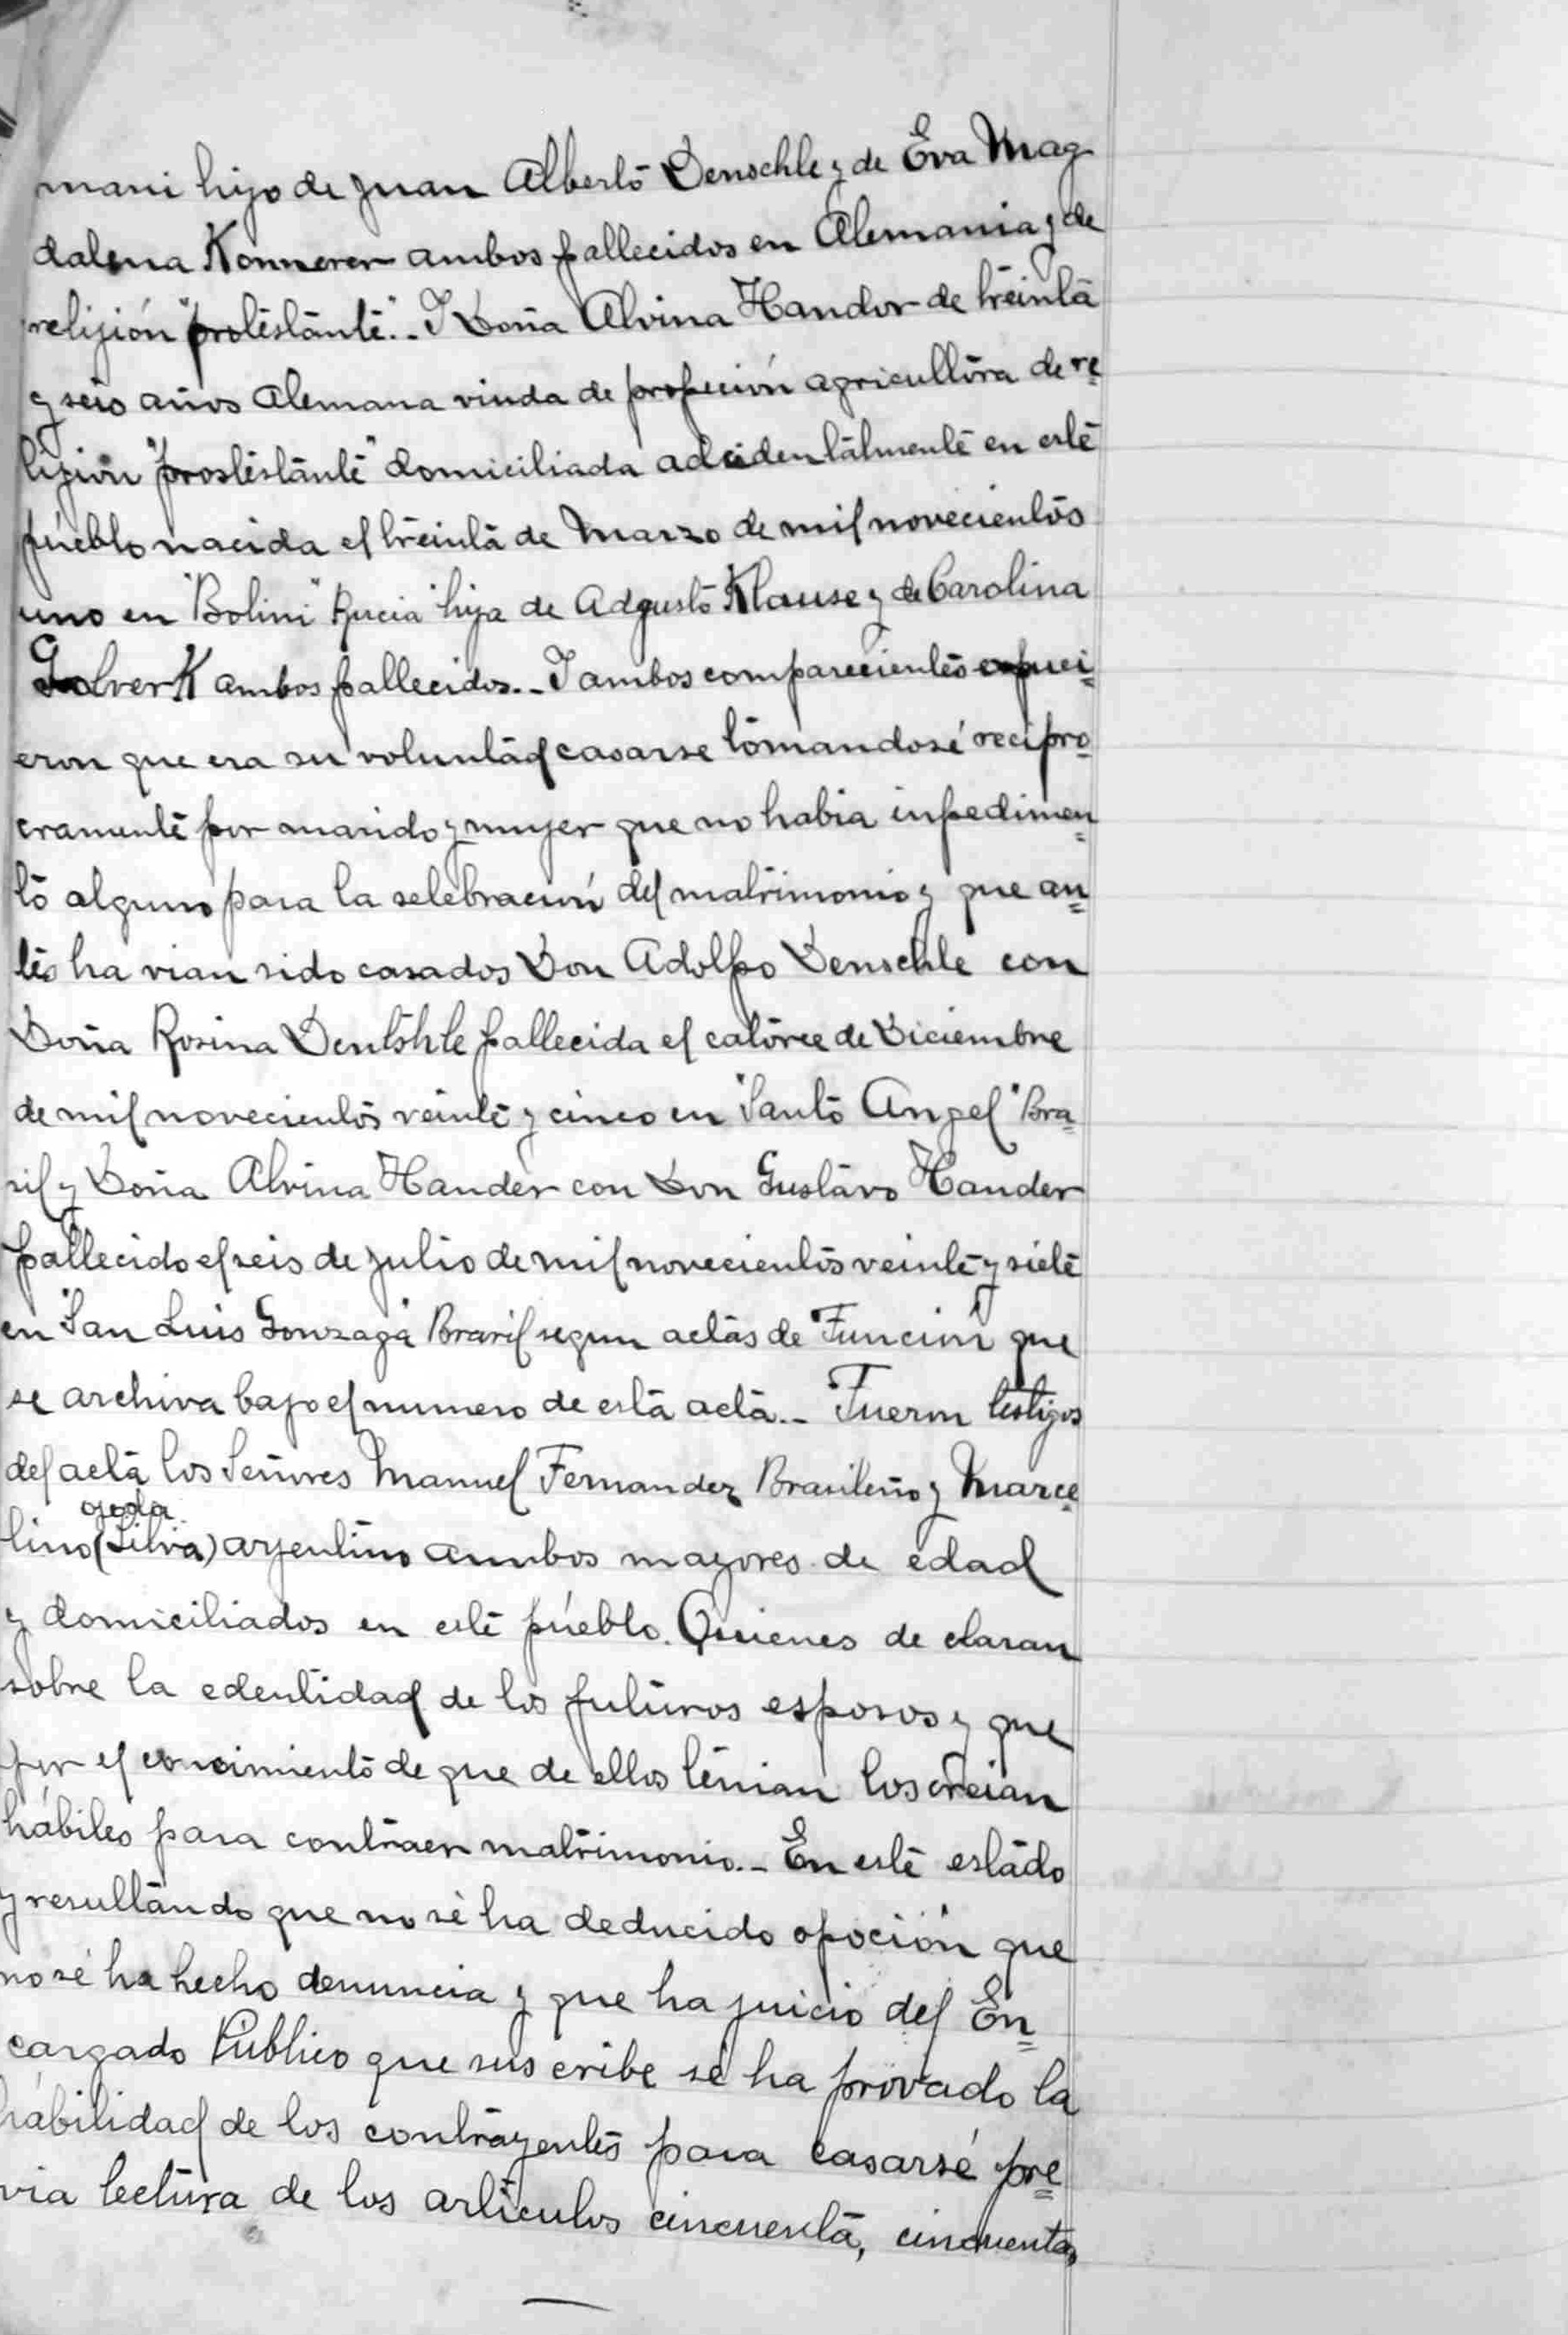 mani hijo de Juan Alberto Denschle y de Eva Mag
dalena Konnerer ambos fallecidos en Alemania y de
relijión "protestante".- I Doña Alvina Handor de treinta
y seis años Alemana viuda de profeción agricultora de re
ligion "prostestante" domiciliada adcidentalmente en este
pueblo nacida el treinta de Marzo de mil novecientos
uno en "Bolini" Rucia hija de Adgusto Klause y de Carolina
GolverK ambos fallecidos.- I ambos comparecientes expuci=
eron que era su voluntad casarse tomandosé recipro=
cramente por marido y mujer que no habia inpedimen=
to alguno para la selebración del matrimonio y que an=
tes ha vian sido casados Don Adolfo Denschle con
Doña Rosina Dentshle fallecida el catorce de Diciembre
de mil novecientos veinte y cinco en "Santo Angel" Bra=
sil y Doña Alvina Hander con Don Gustavo Hander
fallecido el seis de Julio de mil novecientos veinte y siete
en "San Luis Gonzaga" Brasil segun actas de Función que
se archiva bajo el numero de esta acta.- Fueron testigos
del acta los Señores Manuel Fernandez Brasileño y Marce=
ojeda
lino (Silva) arjentino ambos mayores de edad
y domiciliados en este pueblo. Quienes de claran
sobre la edentidad de los futuros esposos y que
por el conocimiento de que de ellos tenian los creian
hábiles para contraer matrimonio.- En este estado
y resultando que no sé ha deducido opoción que
no sé ha hecho denuncia y que ha juicio del En=
cargado Público que sus cribe sé ha provado la
hábilidad de los contrayentes para casarsé pre=
via lectura de los articulos cincuenta, cincuenta